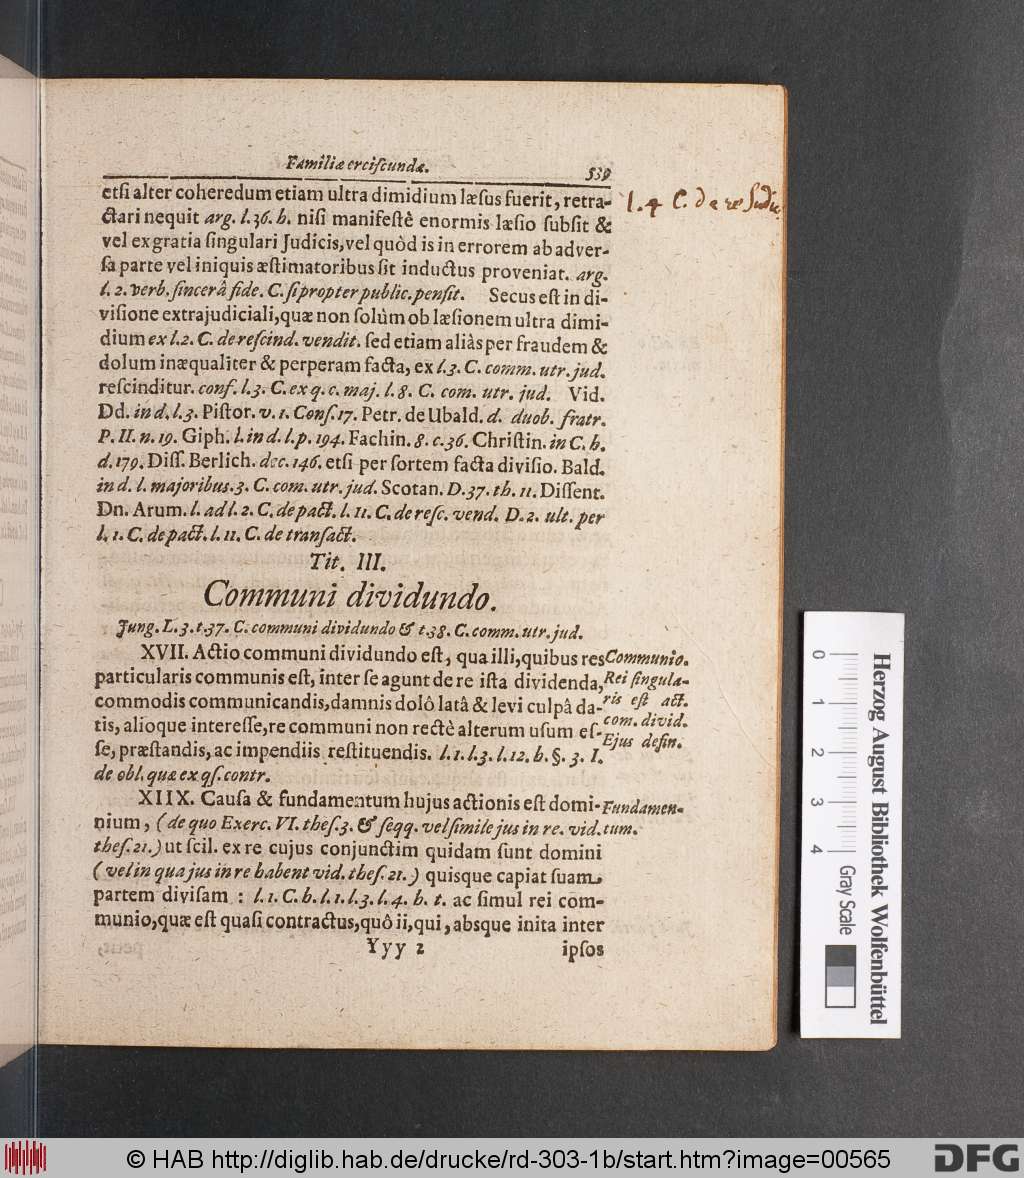 Familiæ erciſcundæ. 539
etſi alter coheredum etiam ultra dimidium læſus fuerit, retra-
ctari nequit arg. l.36. h. niſi manifeſtè enormis læſio ſubſit &
vel ex gratia ſingulari Judicis, vel quòd is in errorem ab adver-
ſa parte vel iniquis æſtimatoribus ſit inductus proveniat. arg.
l. 2. verb. ſincerâ fide. C. ſi propter public. penſit. Secus eſt in di-
viſione extrajudiciali, quæ non ſolùm ob læſionem ultra dimi-
dium ex l.2. C. de reſcind. vendit. ſed etiam aliàs per fraudem &
dolum inæqualiter & perperam facta, ex l.3. C. comm. utr. jud.
reſcinditur. conf. l.3. C. ex q. c. maj. l. 8. C. com. utr. jud. Vid.
Dd. in d. l.3. Piſtor. v. 1. Conſ. 17. Petr. de Ubald. d. duob. fratr.
P. II. n. 19. Giph. l. in d. l. p. 194. Fachin. 8. c. 36. Chriſtin. in C. h.
d. 179. Diſſ. Berlich. dec. 146. etſi per ſortem facta diviſio. Bald.
in d. l. majoribus. 3. C. com. utr. jud. Scotan. D. 37. th. 11. Diſſent.
Dn. Arum. l. ad l. 2. C. de pact. l. 11. C. de reſc. vend. D. 2. ult. per
l. 1. C. de pact. l. 11. C. de tranſact.
l. 4 C. de re Judic.
Tit. III.
Communi dividundo.
Jung. L. 3. t. 37. C. communi dividundo & t. 38. C. comm. utr. jud.
XVII. Actio communi dividundo eſt, qua illi, quibus res
particularis communis eſt, inter ſe agunt de re iſta dividenda,
commodis communicandis, damnis dolô latâ & levi culpâ da-
tis, alioque intereſſe, re communi non rectè alterum uſum eſ-
ſe, præſtandis, ac impendiis reſtituendis. l. 1. l. 3. l. 12. h. §. 3. I.
de obl. quæ ex qſ. contr.
Communio.
Rei ſingula-
ris eſt act.
com. divid.
Ejus defin.
XIIX. Cauſa & fundamentum hujus actionis eſt domi-
nium, (de quo Exerc. VI. theſ. 3. & ſeqq. vel ſimile jus in re. vid.
theſ. 21.) ut ſcil. ex re cujus conjunctim quidam ſunt domini
(vel in qua jus in re habent vid. theſ. 21.) quisque capiat ſuam
partem diviſam : l. 1. C. h. l. 1. l. 3. l. 4. h. t. ac ſimul rei com-
munio, quæ eſt quaſi contractus, quô ii, qui, absque inita inter
Fundamen-
tum.
Yyy 2 ipſos
0 1 2 3 4
Herzog August Bibliothek Wolfenbüttel
Gray Scale
© HAB http://diglib.hab.de/drucke/rd-303-1b/start.htm?image=00565
DFG